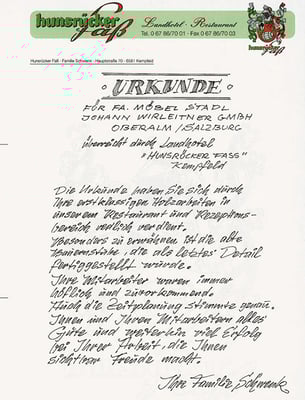 hunsrücker Faß
Landhotel · Restaurant
Tel. 0 67 86/70 01 · Fax 0 67 86/70 03
hunsrücker Faß
Hunsrücker Faß · Familie Schwenk · Hauptstraße 70 · 6581 Kempfeld
URKUNDE
FÜR FA. MÖBEL STADL
JOHANN WIRLEITNER GMBH
OBERALM / SALZBURG
überreicht durch Landhotel
"HUNSRÜCKER FASS"
Kempfeld
Die Urkunde haben Sie sich durch
Ihre erstklassigen Holzarbeiten in
unserem Restaurant und Rezeptions-
bereich redlich verdient.
Besonders zu erwähnen ist die alte
Bauernstube, die als letztes Detail
fertiggestellt wurde.
Ihre Mitarbeiter waren immer
höflich und zuvorkommend.
Auch die Zeitplanung stimmte genau.
Ihnen und Ihren Mitarbeitern alles
Gute und weiterhin viel Erfolg
bei Ihrer Arbeit, die Ihnen
sichtbar Freude macht.
Ihre Familie Schwenk